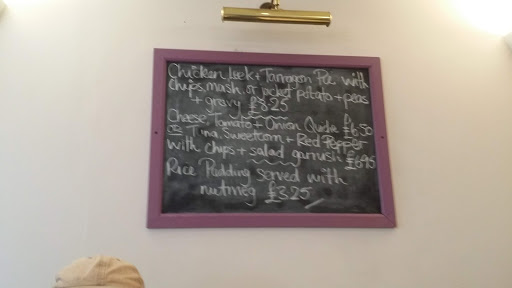 Chicken, Leek + Tarragon Pie with
chips, mash, or jacket potato + peas
+ gravy £8.25
Cheese, Tomato + Onion Quiche £6.50
or Tuna, Sweetcorn + Red Pepper
with chips + salad garnish £6.95
Rice Pudding served with
nutmeg £3.25